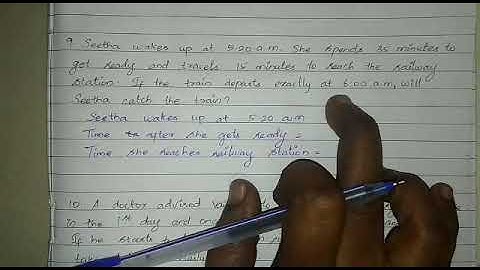 9. Seetha wakes up at 5.20 a.m. She spends 35 minutes to
get ready and travels 15 minutes to reach the railway
station. If the train departs exactly at 6.00 a.m, will
Seetha catch the train?
Seetha wakes up at 5.20 a.m
Time after she gets ready =
Time she reaches railway station =
10. A doctor advised
in the 1st day and
If he starts